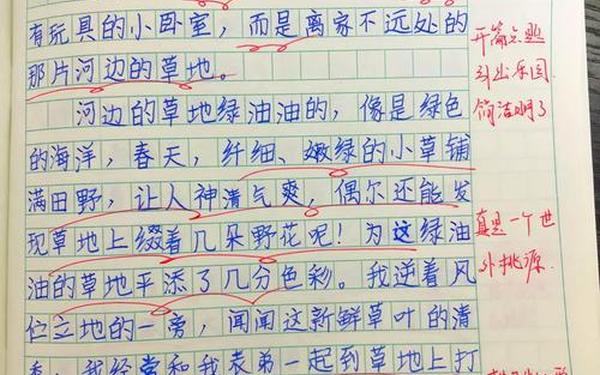 有玩具的小卧室，而是离家不远处的
那片河边的草地。
河边的草地绿油油的，像是绿色
的海洋，春天，纤细、嫩绿的小草铺
满田野，让人神清气爽，偶尔还能发
现草地上缀着几朵野花呢！为这绿油
油的草地平添了几分色彩。我逆着风
伫立地的一旁，闻闻这新鲜草叶的清
香，我经常和我表弟一起到草地上打
开篇点题
引出乐园
简洁明了
真是一个世
外桃源.